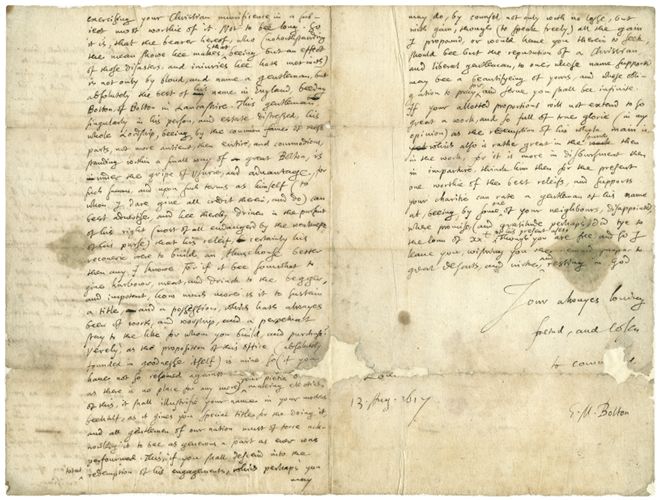 exercising your Christian munificence in a sub-
iect most worthie of it. Not to bee long. So
it is, that the bearer hereof, who (notwithstanding
the mean showe hee makes, that beeing but an effect
of those disasters, and iniuries hee hath met with)
is not only by bloud, and name a gentleman, but
absolutely the best of his name in England, beeing
Bolton, of Bolton in Lancashire. This gentleman
singularly in his person, and estate distressed, his
whole Lordship, beeing, by the common fame of those
parts, not more antient, then entire, and commodious,
standing within a small way of great Bolton, is
under the gripe of Usurie, and advantage, for
such summs, and upon such terms as himself (to
whom I dare give all credit therin, and do) can
best advertise, and hee therby driven in the pursuit
of his right (most of all endangerd by the weaknes
of his purse) that his relief, certainly his
recoverie were to build an Almeshouse better
then any I knowe. for if it bee somewhat to
give harbour, meat, and drink to the begger,
and impotent, how much more is it to sustain
a title, and a possession, which hath alwayes
been of worth, and worship, and a perpetuall
stay to the like for whom you build, and purchase
Verely, as the proposition of this office (absolutely
founded in goodnesse itself) is mine so (if you
have not so resolved against your pietie
as there is no place for any more) making election
of this, it shall illustrate your names in your modest
beehalf, as it gives you special titles for the doing it,
and all gentlemen of our nation must of force ack-
nowledg it to bee as generous a part as ever was
performed. Thus, if you shall descend into the
total redemption of his engagements, which perhaps you
may
may do, by counsel not only with no losse, but
with gain, though (to speak freely) all the gain
I propound, or would have you therein to seek
should bee but the reputation of a Christian
and liberal gentleman, to one whose name supports
may bee a beautifying of yours, and whose obli-
gation to pray, and serve you shall bee infinite.
If your allotted proportions will not extend to so
great a work, and so full of true glorie (in my
opinion) as the redemption of his whole main is,
which also is rather great in the sound then
in the work, for it is more in disbursment then
in imparture, think him then for the present
one worthie of the best releif, and supports
your charitie can rate a gentleman of his name
at, beeing by some one of your neighbours, disappointed,
whose promise, and gratitude perhaps did tye to
the loan of xx though you are free, and so I
leave you, wishing you
great deserts, and in the resting in God
Your alwayes loving
freind, and Cosen
to command
London
13 Aug. 1617
E. M. Bolton